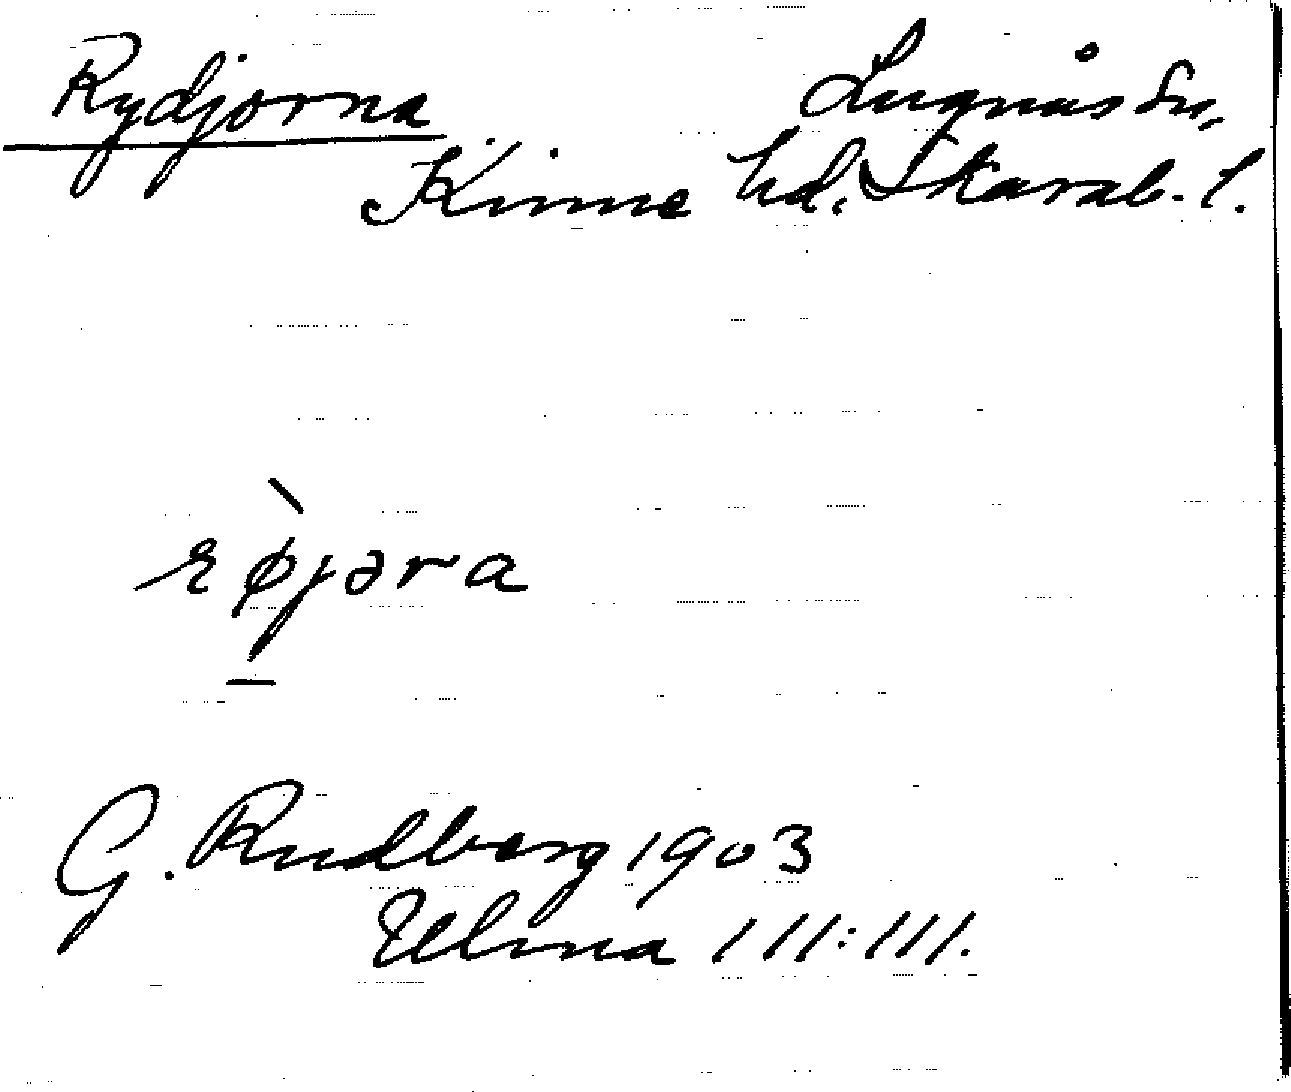 Rydjorna Lugnås Sn,
Kinne hd. Skarab. l.
rø̀jəra
G. Rudberg 1903
Ulma 111:111.